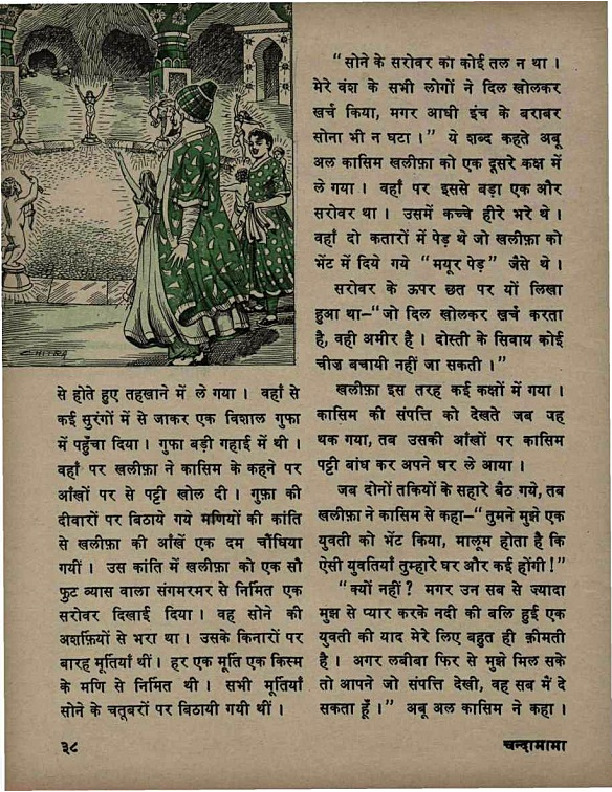 CHITRA
से होते हुए तहखाने में ले गया । वहाँ से
कई सुरंगों में से जाकर एक विशाल गुफा
में पहुँचा दिया । गुफा बड़ी गहाई में थी ।
वहाँ पर खलीफ़ा ने कासिम के कहने पर
आँखों पर से पट्टी खोल दी । गुफ़ा की
दीवारों पर बिठाये गये मणियों की कांति
से खलीफ़ा की आँखें एक दम चौंधिया
गयीं । उस कांति में खलीफ़ा को एक सौ
फुट व्यास वाला संगमरमर से निर्मित एक
सरोवर दिखाई दिया । वह सोने की
अशर्फ़ियों से भरा था । उसके किनारों पर
बारह मूर्तियाँ थीं । हर एक मूर्ति एक किस्म
के मणि से निर्मित थी । सभी मूर्तियाँ
सोने के चतूबरों पर बिठायी गयी थीं ।
“सोने के सरोवर का कोई तल न था ।
मेरे वंश के सभी लोगों ने दिल खोलकर
खर्च किया, मगर आधी इंच के बराबर
सोना भी न घटा ।” ये शब्द कहते अबू
अल कासिम खलीफ़ा को एक दूसरे कक्ष में
ले गया । वहाँ पर इससे बड़ा एक और
सरोवर था । उसमें कच्चे हीरे भरे थे ।
वहाँ दो कतारों में पेड़ थे जो खलीफ़ा को
भेंट में दिये गये “मयूर पेड़” जैसे थे ।
सरोवर के ऊपर छत पर यों लिखा
हुआ था—“जो दिल खोलकर खर्च करता
है, वही अमीर है । दोस्ती के सिवाय कोई
चीज़ बचायी नहीं जा सकती ।”
खलीफ़ा इस तरह कई कक्षों में गया ।
कासिम की संपत्ति को देखते जब वह
थक गया, तब उसकी आँखों पर कासिम
पट्टी बांध कर अपने घर ले आया ।
जब दोनों तकियों के सहारे बैठ गये, तब
खलीफ़ा ने कासिम से कहा—“तुमने मुझे एक
युवती को भेंट किया, मालूम होता है कि
ऐसी युवतियाँ तुम्हारे घर और कई होंगी !”
“क्यों नहीं ? मगर उन सब से ज्यादा
मुझ से प्यार करके नदी की बलि हुई एक
युवती की याद मेरे लिए बहुत ही क़ीमती
है । अगर लबीबा फिर से मुझे मिल सके
तो आपने जो संपत्ति देखी, वह सब में दे
सकता हूँ ।” अबू अल कासिम ने कहा ।
३८
चन्दामामा